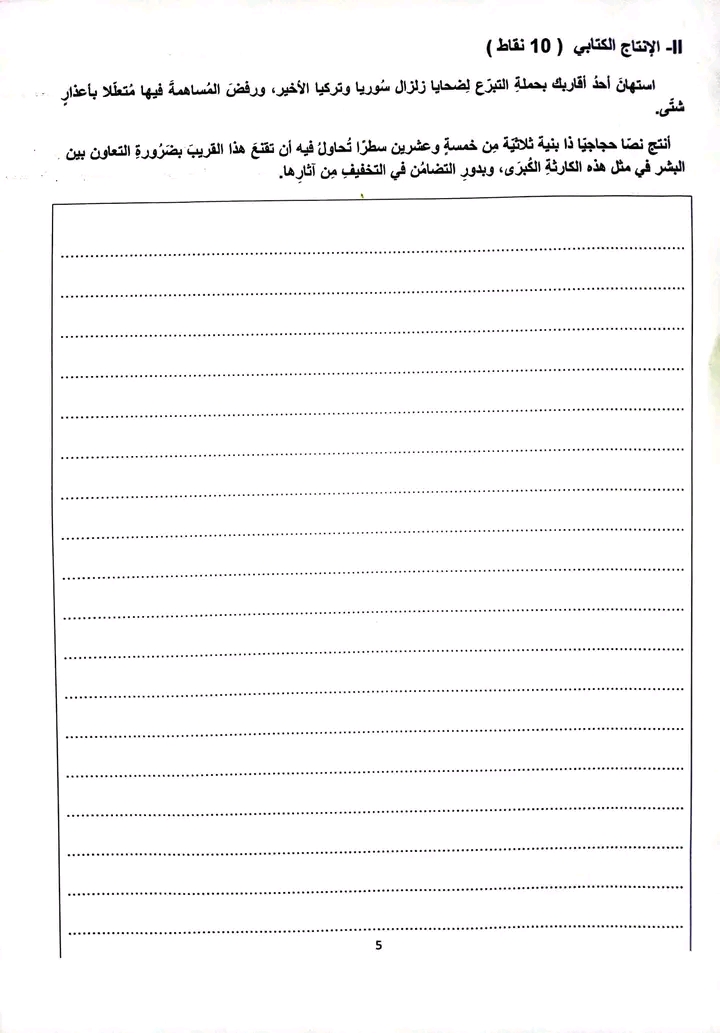 II- الإنتاج الكتابي ( 10 نقاط )
استهانَ أحدُ أقاربك بحملةِ التبرّع لِضحايا زلزال سُوريا وتركيا الأخير، ورفضَ المُساهمةَ فيها مُتعلّلا بأعذارٍ
شتّى.
أنتج نصّا حجاجيّا ذا بنية ثلاثيّة مِن خمسةٍ وعشرين سطرًا تُحاولُ فيه أن تقنعَ هذا القريبَ بضَرُورةِ التعاون بين
البشر في مثل هذه الكارثةِ الكُبرَى، وبدورِ التضامُن في التخفيفِ مِن آثارِها.
5